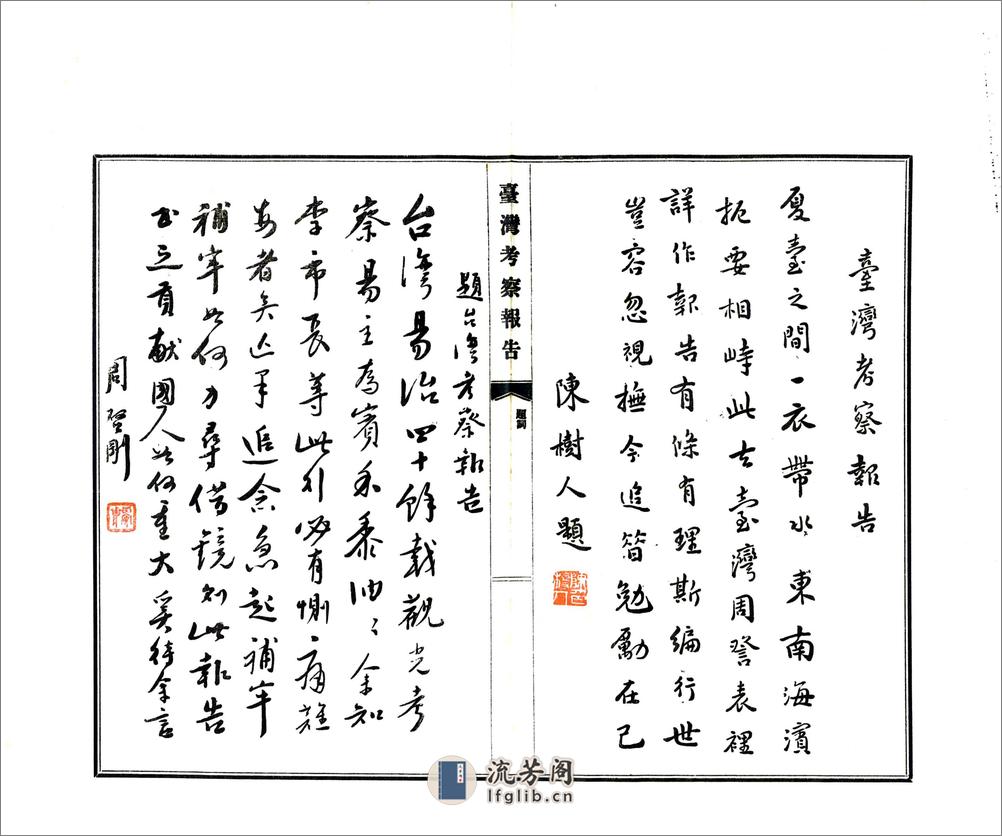 臺灣考察報告
夏臺之間一衣帶水東南海濱
扼要相峙此去臺灣周詧表裡
詳作報告有條有理斯編行世
豈容忽視撫今追昔勉勵在己
陳樹人題
臺灣考察報告
題詞
題台灣考察報告
台灣易治四十餘載觀光考
察易主為賓禾黍油〻余知
李市長等此行必有惻痛難
安者矣近年追念急起補牢
補牢如何力尋借鏡則此報告
書之貢獻國人如何重大奚待余言
周啓剛
流芳阁
lfglib.cn